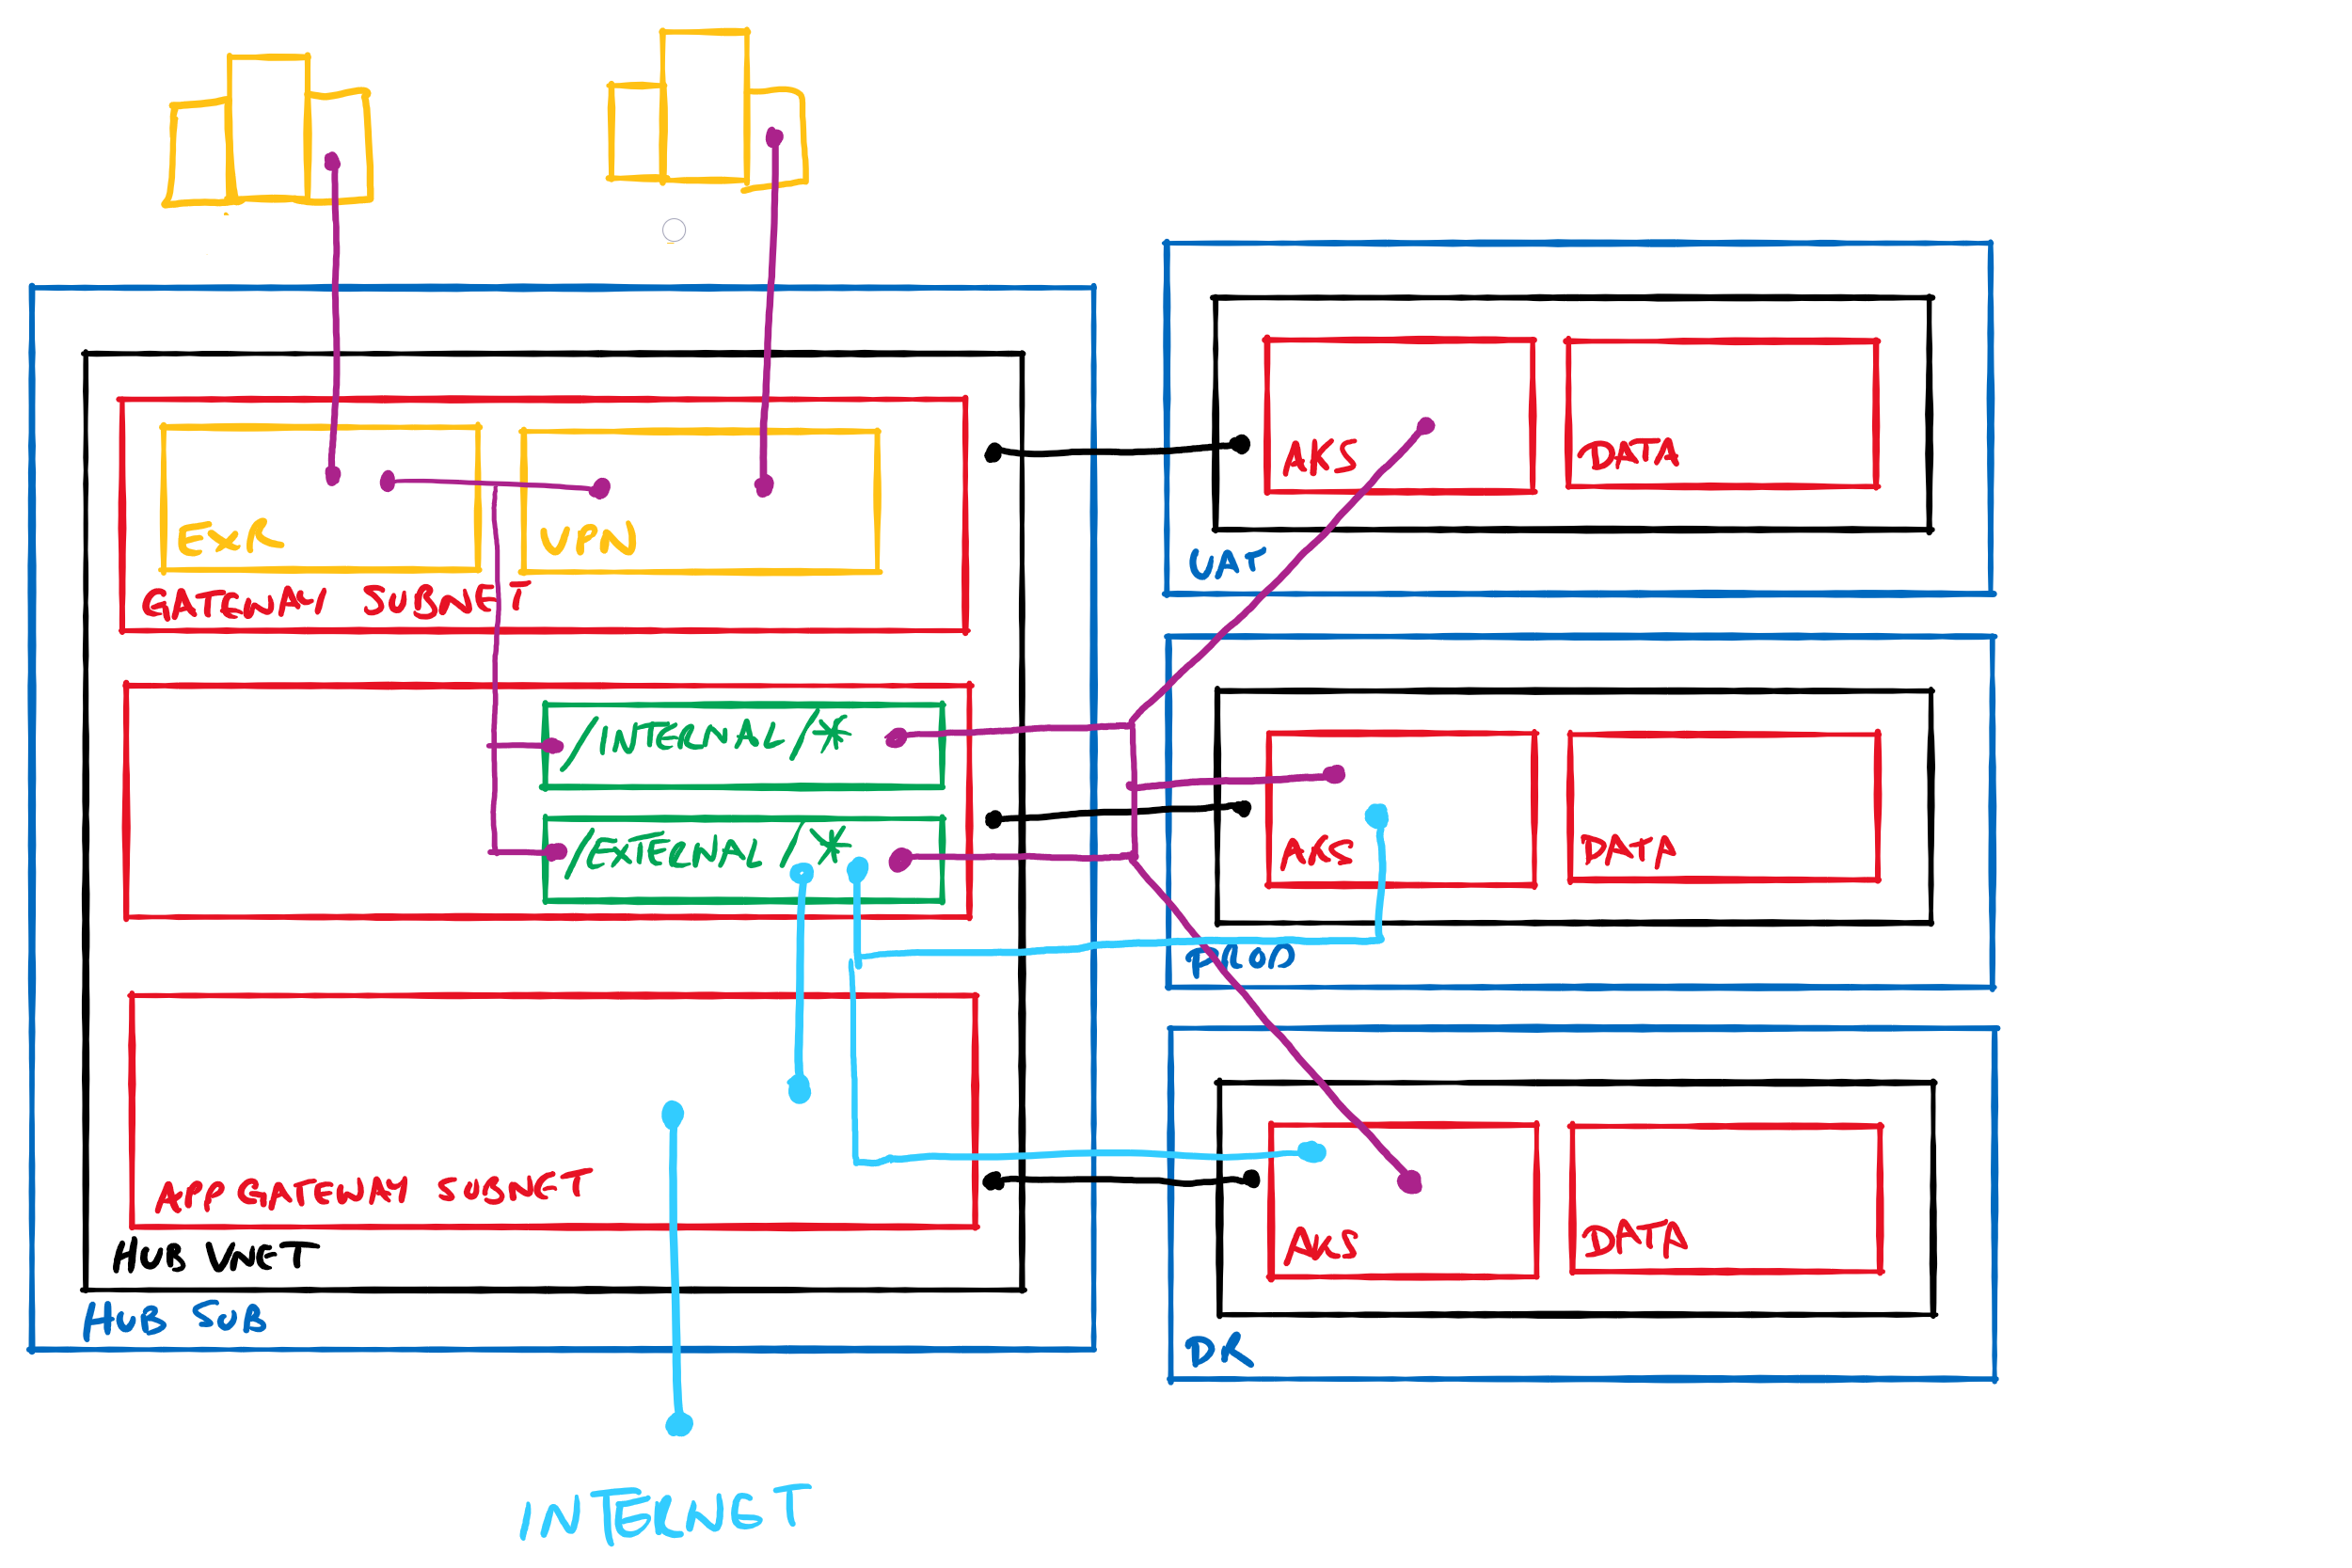 ExR
VPN
GATEWAY SUBNET
/INTERNAL/*
/EXTERNAL/*
APP GATEWAY SUBNET
HUB VNET
HUB SUB
INTERNET
AKS
DATA
UAT
AKS
DATA
PROD
AKS
DATA
DR